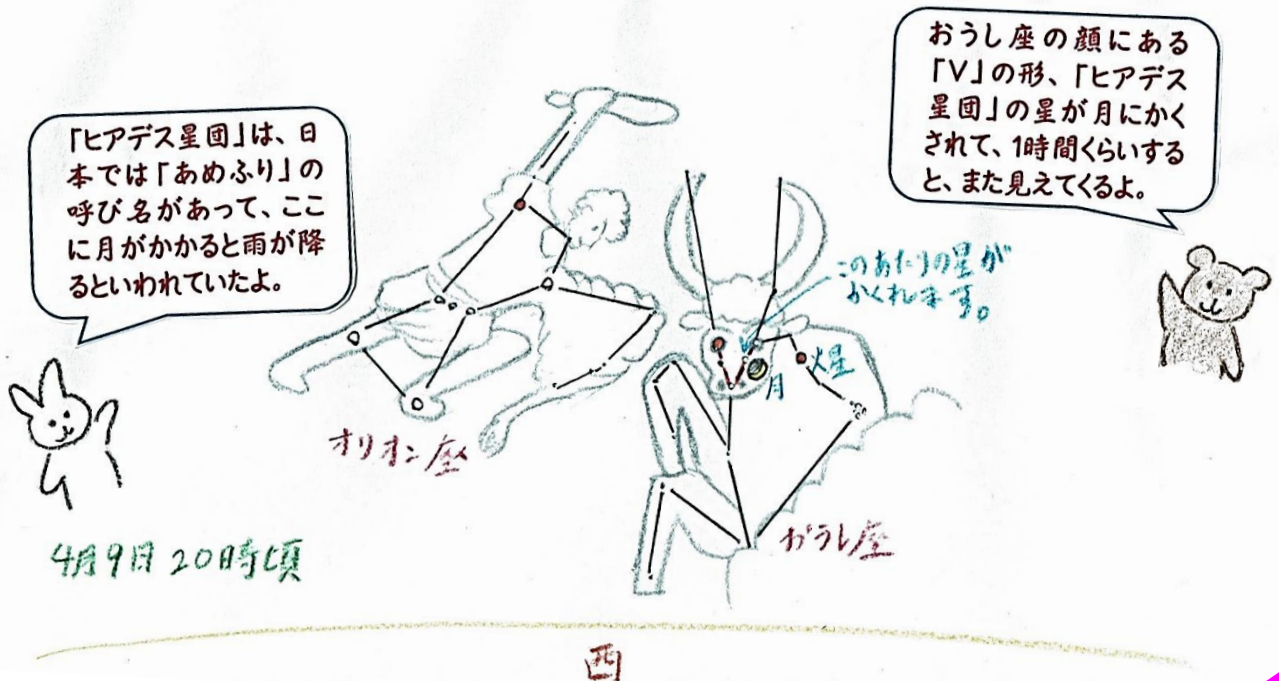 「ヒアデス星団」は、日
本では「あめふり」の
呼び名があって、ここ
に月がかかると雨が降
るといわれていたよ。
おうし座の顔にある
「V」の形、「ヒアデス
星団」の星が月にかく
されて、1時間くらいする
と、また見えてくるよ。
このあたりの星が
かくれます。
火星
月
オリオン座
おうし座
4月9日 20時頃
西